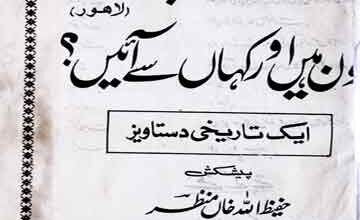 (لاہور)
ون ہیں اور کہاں سے آئیں؟
ایک تاریخی دستاویز
پیشکش
حفیظ اللہ خاں منظر